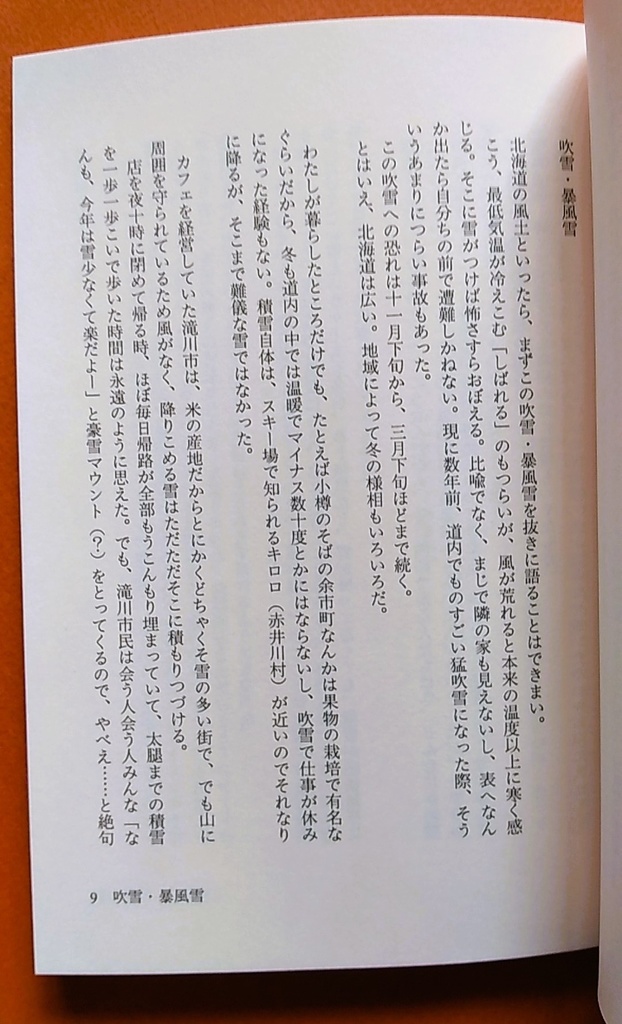 吹雪・暴風雪
北海道の風土といったら、まずこの吹雪・暴風雪を抜きに語ることはできまい。
こう、最低気温が冷えこむ「しばれる」のもつらいが、風が荒れると本来の温度以上に寒く感
じる。そこに雪がつけば怖さすらおぼえる。比喩でなく、まじで隣の家も見えないし、表へなん
か出たら自分ちの前で遭難しかねない。現に数年前、道内でものすごい猛吹雪になった際、そう
いうあまりにつらい事故もあった。
この吹雪への恐れは十一月下旬から、三月下旬ほどまで続く。
とはいえ、北海道は広い。地域によって冬の様相もいろいろだ。
わたしが暮らしたところだけでも、たとえば小樽のそばの余市町なんかは果物の栽培で有名な
ぐらいだから、冬も道内の中では温暖でマイナス数十度とかにはならないし、吹雪で仕事が休み
になった経験もない。積雪自体は、スキー場で知られるキロロ（赤井川村）が近いのでそれなり
に降るが、そこまで難儀な雪ではなかった。
カフェを経営していた滝川市は、米の産地だからとにかくどちゃくそ雪の多い街で、でも山に
周囲を守られているため風がなく、降りこめる雪はただただそこに積もりつづける。
店を夜十時に閉めて帰る時、ほぼ毎日帰路が全部もうこんもり埋まっていて、太腿までの積雪
を一歩一歩こいで歩いた時間は永遠のように思えた。でも、滝川市民は会う人会う人みんな「な
んも、今年は雪少なくて楽だよー」と豪雪マウント（？）をとってくるので、やべえ……と絶句
9 吹雪・暴風雪